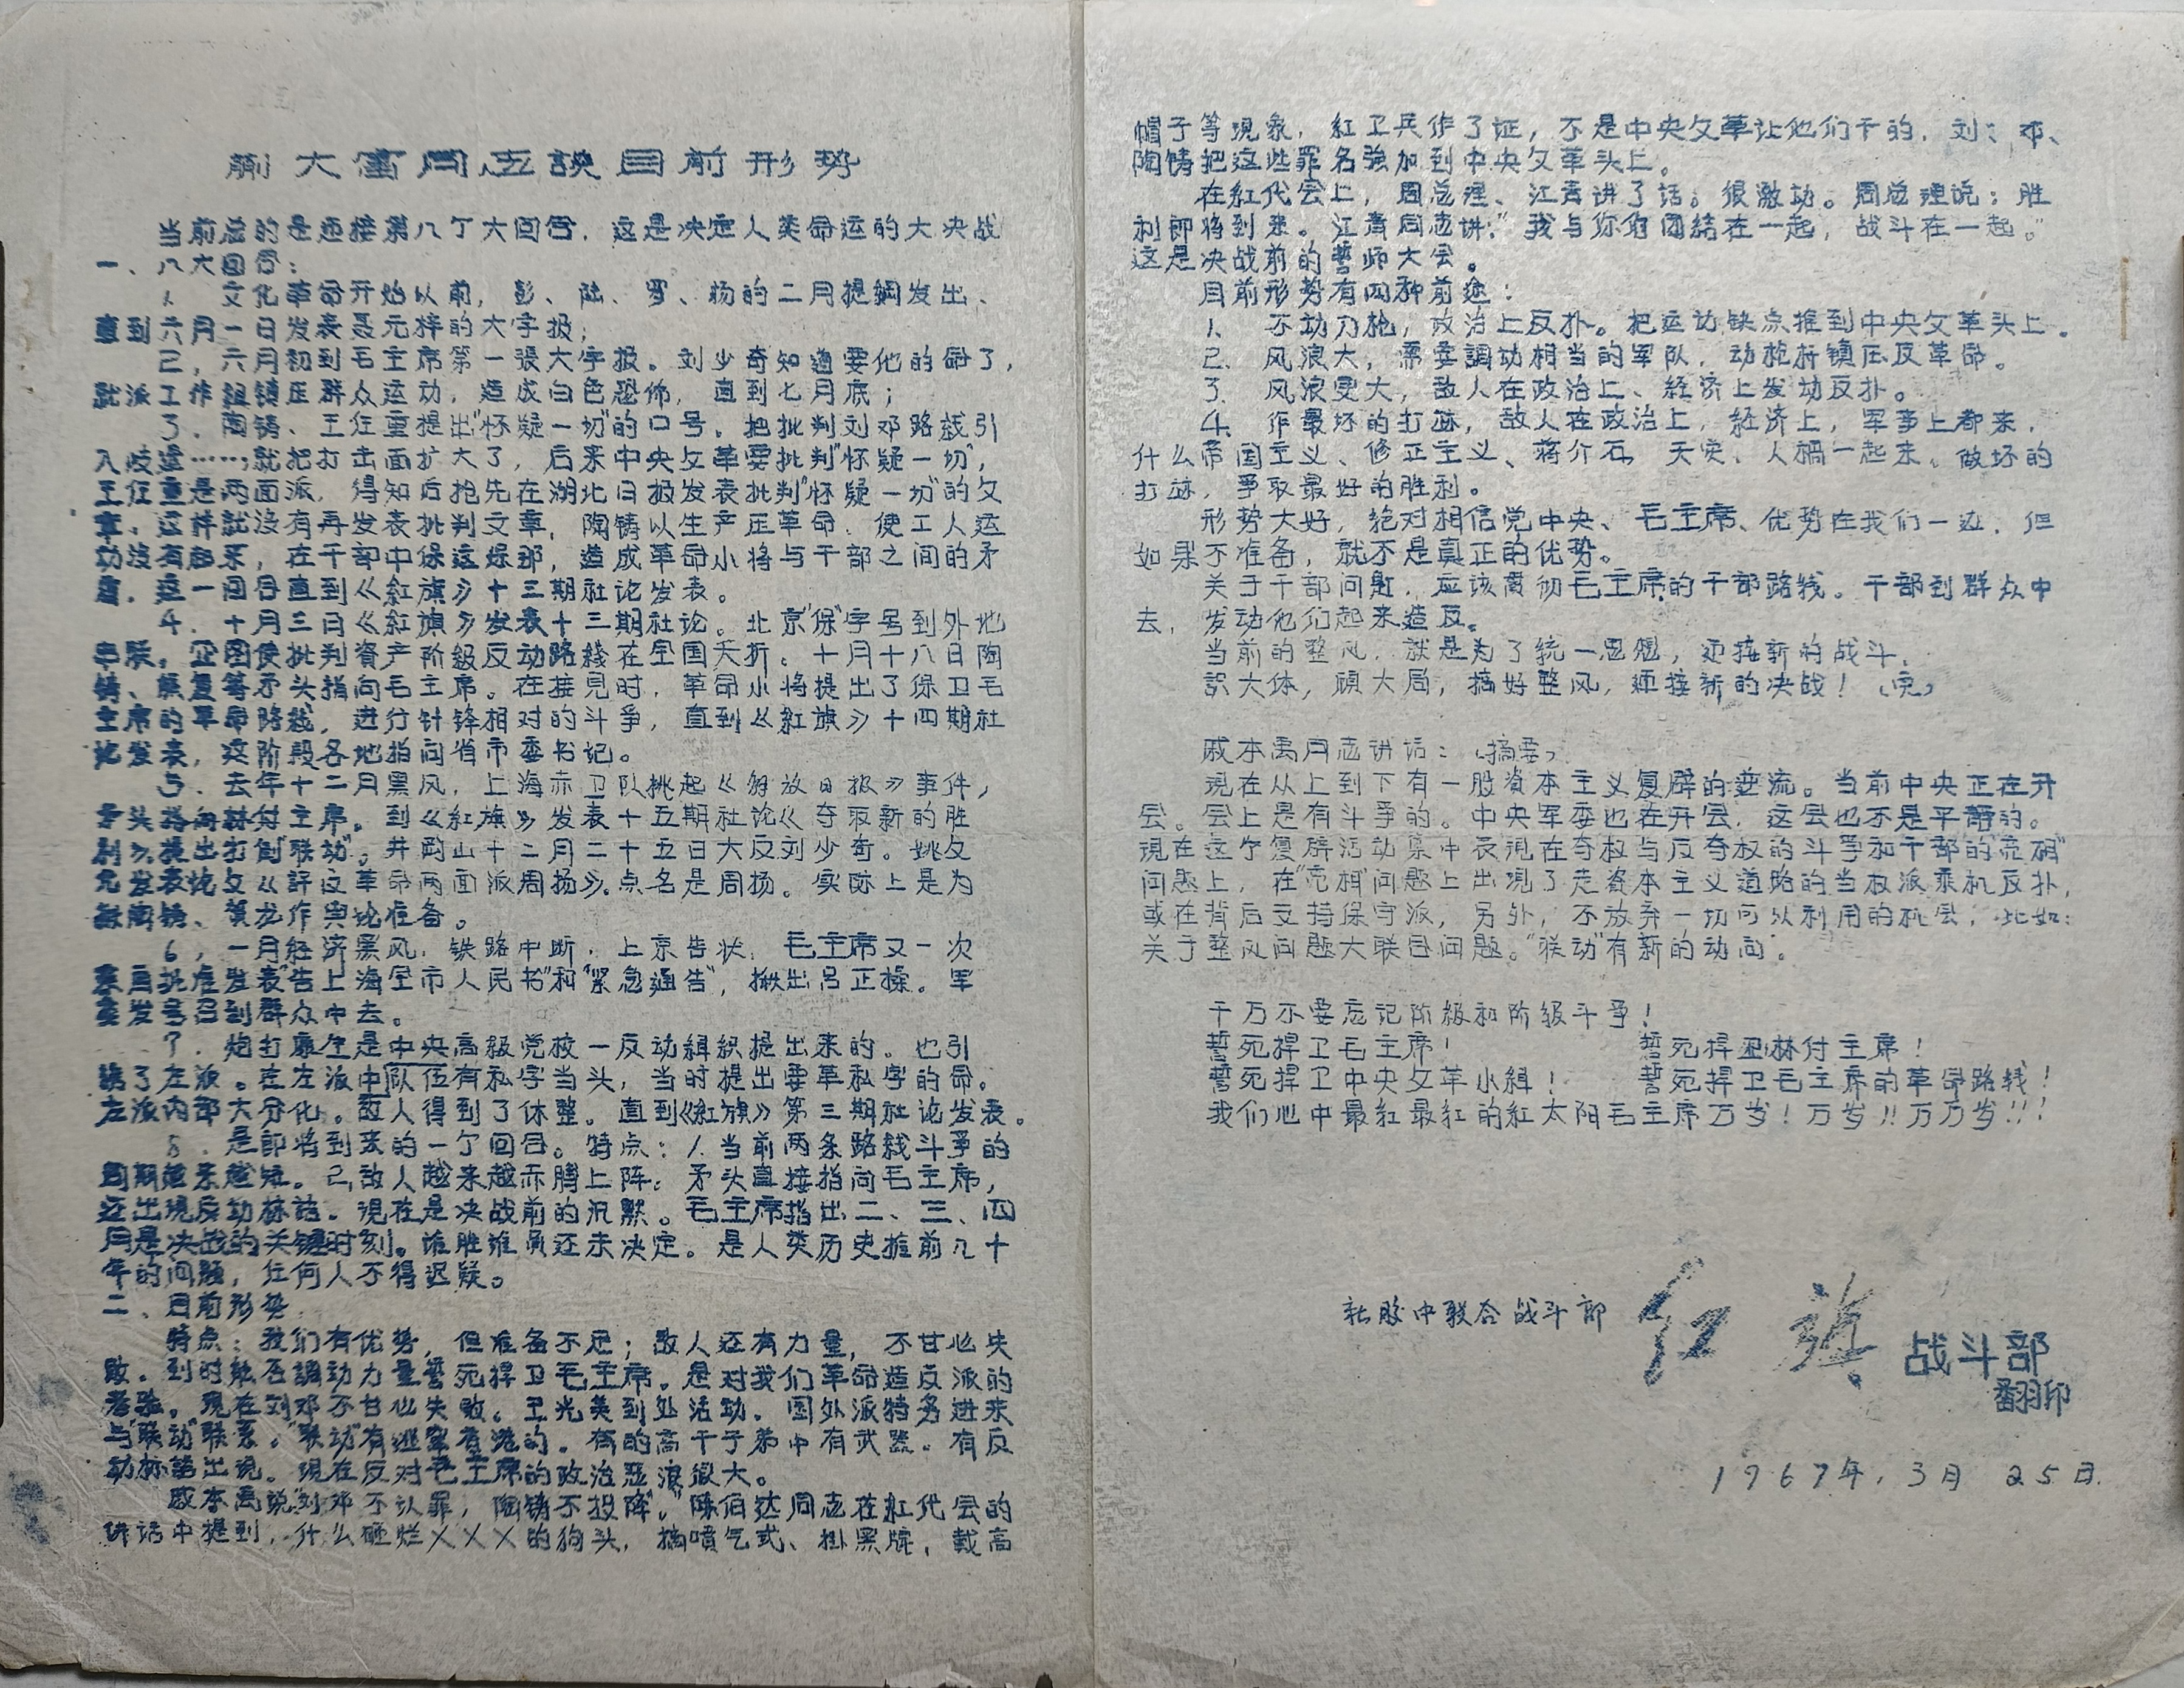 蒯大富同志談目前形势
当前总的是迎接第八个大回合，这是决定人类命运的大决战
一、八大回合：
1. 文化革命开始以前，彭、陆、罗、杨的二月提綱发出、
直到六月一日发表聂元梓的大字报；
2，六月初到毛主席第一張大字报。刘少奇知道要他的命了，
就派工作組镇压群众运动，造成白色恐怖，直到七月底；
3．陶铸、王任重提出“怀疑一切”的口号。把批判刘邓路线引
入歧途……，就把打击面扩大了，后来中央文革要批判“怀疑一切”，
王任重是两面派，得知后抢先在湖北日报发表批判“怀疑一切”的文
章。这样就没有再发表批判文章，陶铸以生产压革命，使工人运
动没有起来，在干部中保这保那，造成革命小将与干部之间的矛
盾．这一回合直到《紅旗》十三期社论发表。
4．十月三日《紅旗》发表十三期社论。北京“保”字号到外地
串联，企图使批判資产阶级反动路綫在全国夭折。十月十八日陶
铸、 等矛头指向毛主席。在接見时，革命小将提出了保卫毛
主席的革命路线，进行针锋相对的斗争，直到《紅旗》十四期社
论发表，这阶段各地指向省市委书记。
5．去年十二月黑风，上海赤卫队挑起《解放日报》事件，
矛头指向林付主席。到《紅旗》发表十五期社论《夺取新的胜
利》提出打倒“联动”。井岡山十二月二十五日大反刘少奇。姚文
元发表论文《評反革命两面派周扬》。点名是周扬。实际上是为
揪陶铸、贺龙作舆论准备。
6，一月经济黑风．铁路中断．上京告状．毛主席又一次
亲自批准发表“告上海全市人民书”和“緊急通告”，揪出吕正操。军
委发号召到群众中去。
7．炮打康生是中央高級党校一反动組织提出来的。也引
誘了左派。在左派中队伍有私字当头，当时提出要革私字的命。
左派内部大分化。敌人得到了休整。直到《紅旗》第三期社论发表。
8．是即将到来的一个回合。特点：1.当前两条路线斗爭的
周期越来越短。2，敌人越来越赤膊上阵。矛头直接指向毛主席，
还出現反动标語。現在是决战前的沉默。毛主席指出二、三、四
月是决战的关键时刻。谁胜谁负还未决定。是人类历史推前几十
年的问题，任何人不得迟疑。
二、目前形势
特点：我们有优势，但准备不足；敌人还有力量，不甘心失
败。到时能否調动力量誓死捍卫毛主席。是对我们革命造反派的
考验。現在刘邓不甘心失败。王光美到处活动．国外派特务进来
与“联动”联系。“联动”有逃 香港的．有的高干子弟中有武器。有反
动标語出現。現在反对毛主席的政治恶浪很大。
戚本禹说“刘邓不认罪，陶铸不投降”。“陈伯达同志在紅代会的
讲话中提到，什么砸烂×××的狗头，搞喷气式、掛黑牌，载高
帽子等現象，紅卫兵作了证，不是中央文革让他们干的，刘、邓、
陶铸把这些罪名強加到中央文革头上。
在紅代会上，周总理、江青讲了话。很激动。周总理说：胜
利即将到来。江青同志讲：“我与你们团結在一起，战斗在一起。”
这是决战前的誓师大会。
目前形势有四种前途：
1、 不动刀枪，政治上反扑。把运动缺点推到中央文革头上。
2、 风浪大，需要調动相当的军队，动枪折镇压反革命。
3、 风浪更大，敌人在政治上、経济上发动反扑。
4、 作最坏的打祘，敌人在政治上，経济上，军事上都来，
什么帝国主义、修正主义、蒋介石，天灾、人禍一起来。做坏的
打祘，爭取最好的胜利。
形势大好，绝对相信党中央、毛主席、优势在我们一边．但
如果不准备，就不是真正的优势。
关于干部问题．应该贯彻毛主席的干部路线。干部到群众中
去，发动他们起来造反。
当前的整风．就是为了統一思想，迎接新的战斗．
识大体，顾大局，搞好整风，迎接新的决战！（完）
戚本禹同志讲话：（摘要）
現在从上到下有一股資本主义复辟的逆流。当前中央正在开
会。会上是有斗争的。中央军委也在开会．这会也不是平靜的。
現在这个复辟活动集中表現在夺权与反夺权的斗爭和干部的“亮相”
问题上，在“亮相”问题上出現了走資本主义道路的当权派乘机反扑，
或在背后支持保守派，另外，不放弃一切可以利用的机会，比如：
关于整风问题大联合问题。“联动”有新的动向．
千万不要忘记阶級和阶級斗争！
誓死捍卫毛主席！ 誓死捍卫林付主席！
誓死捍卫中央文革小組！ 誓死捍卫毛主席的革命路线！
我们心中最紅最红的紅太阳毛主席万岁！万岁!!万万岁!!!
中联合战斗部 红旗 战斗部
翻印
1967年．3月 25日．